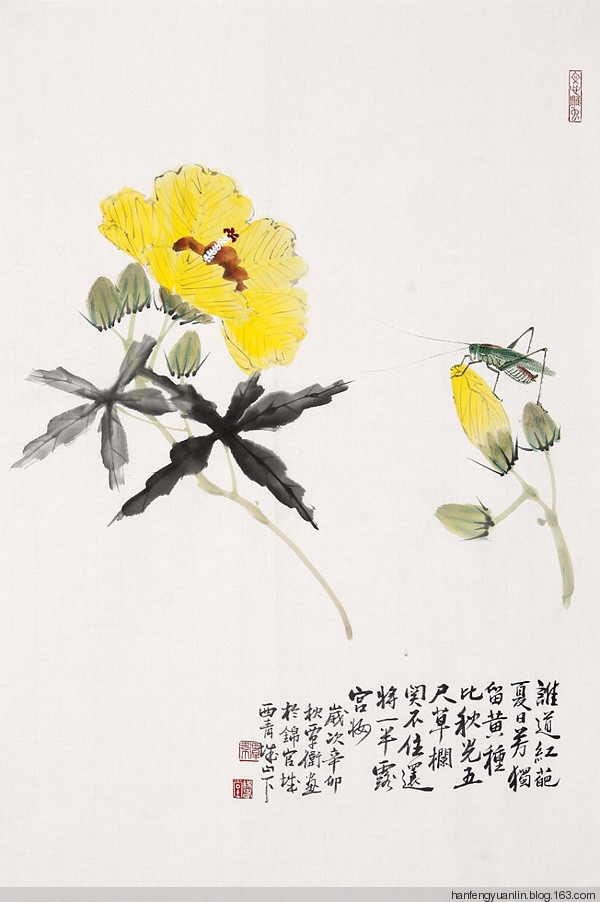 誰道紅葩
夏日芳獨
留黄種
比秋光五
尺草欄
関不住還
將一半露
宮妝
歲次辛卯
秋覃衛画
於錦官城
西青城山下
hanfengyuanlin.blog.163.com